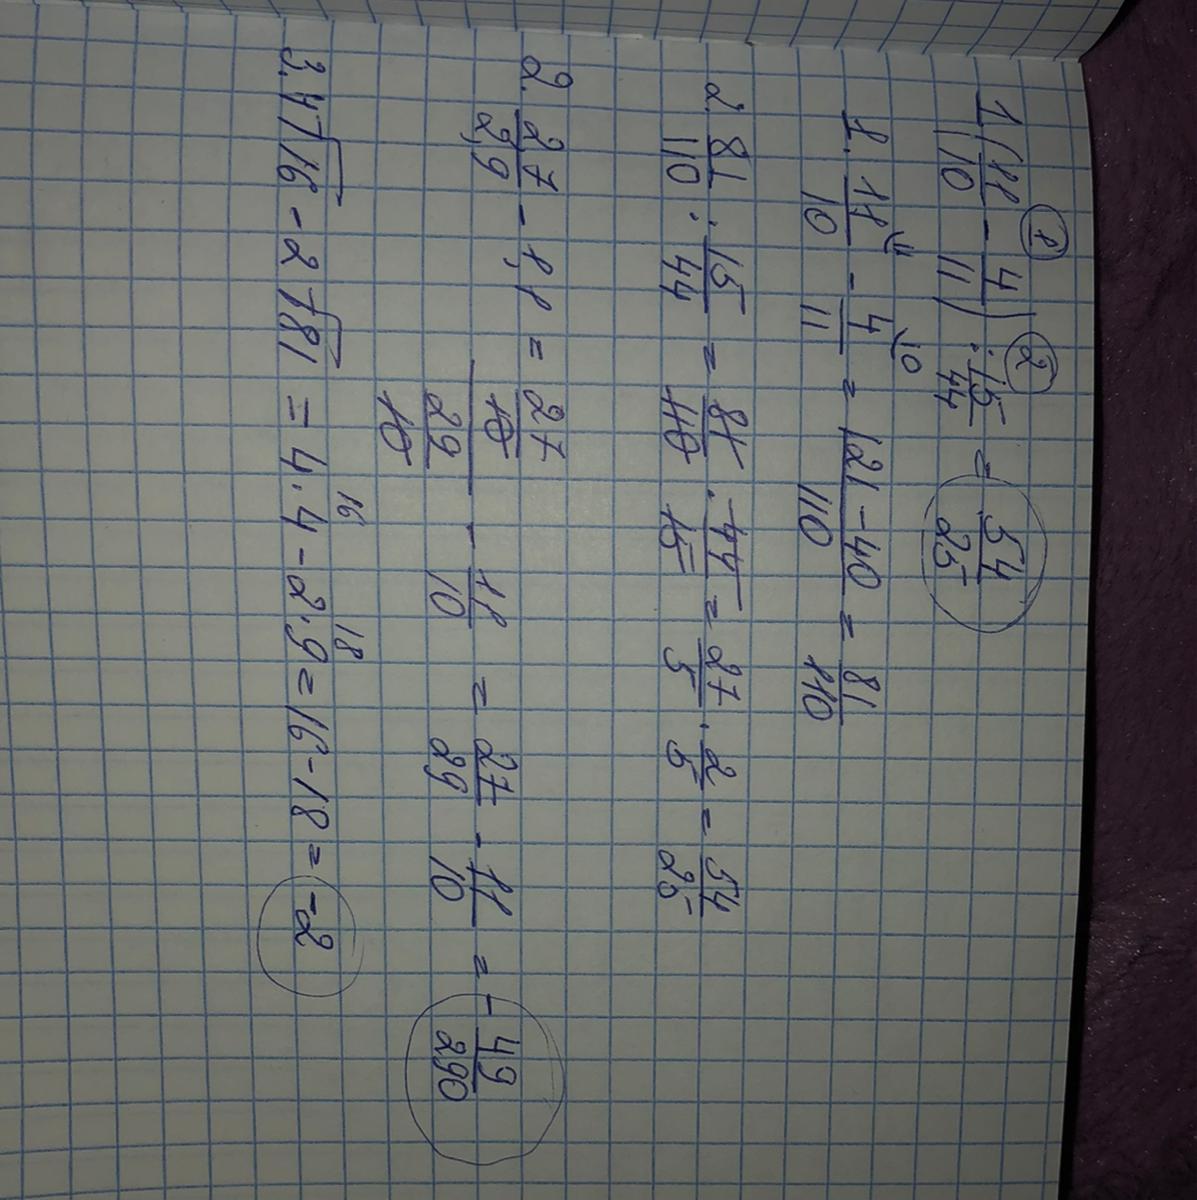 ① ②
1. (11/10 - 4/11) : 15/44 = 54/25
1. 11/10 - 4/11 = 121-40/110 = 81/110
2. 81/110 : 15/44 = 81/110 · 44/15 = 27/5 · 2/5 = 54/25
2. 27/2,9 - 1,1 = 27/10 / 29/10 - 11/10 = 27/29 - 11/10 = -49/290
16 18
3. 4√16 - 2√81 = 4·4 - 2·9 = 16-18 = -2